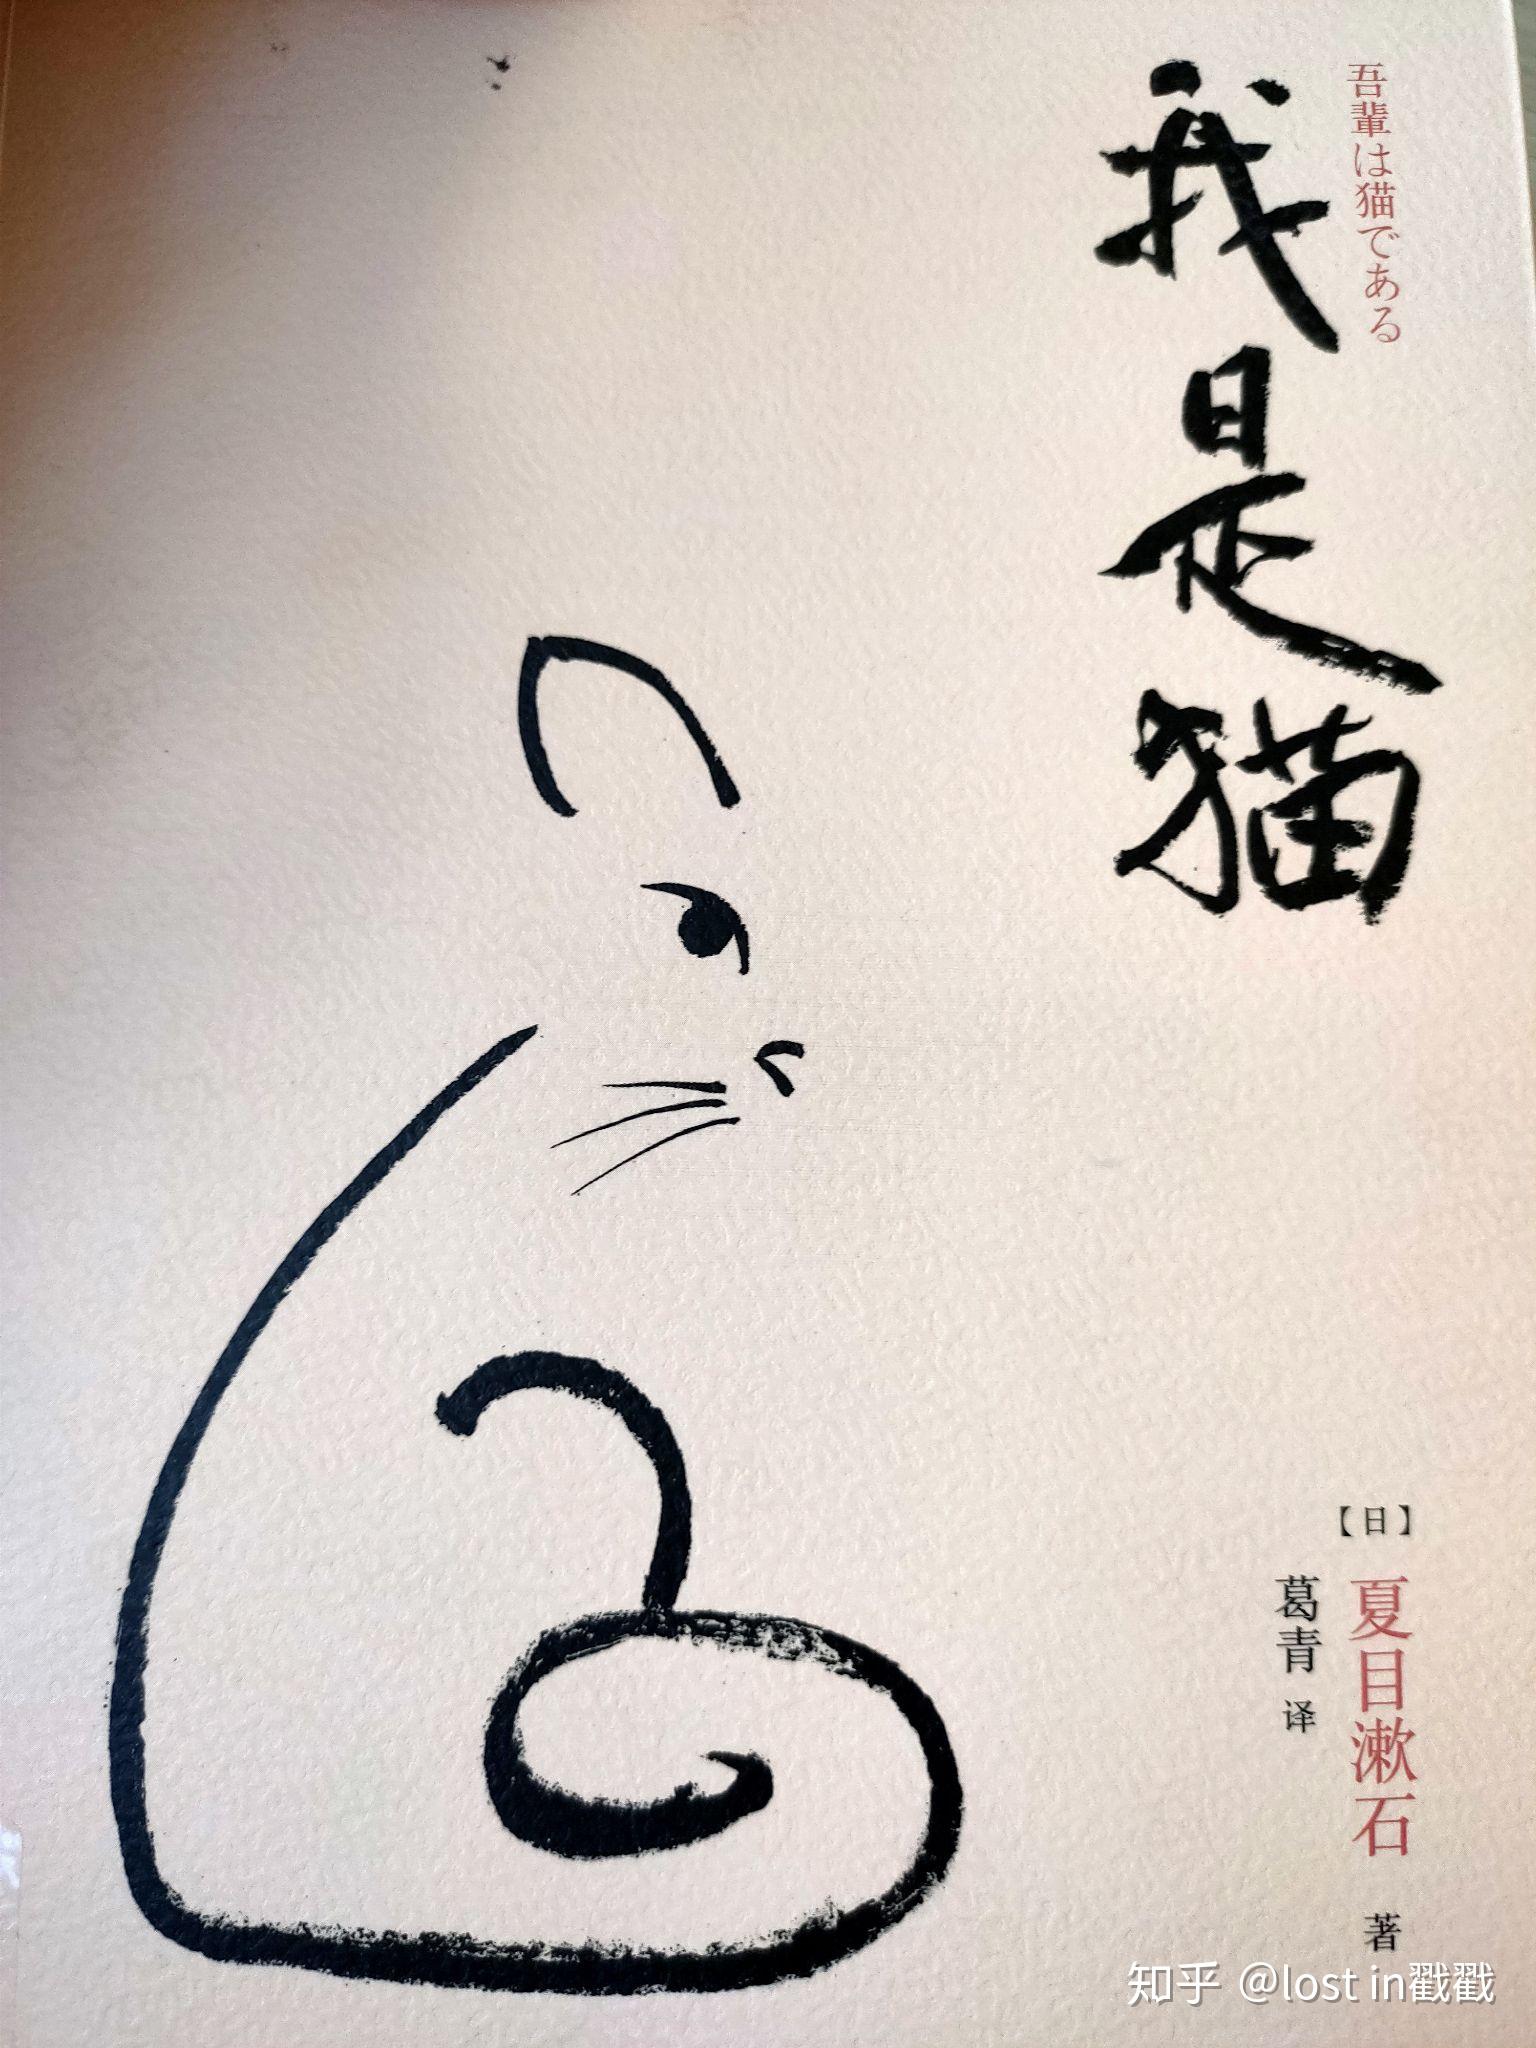 吾輩は猫である
我是猫
【日】
夏目漱石 著
葛青 译
知乎 @lost in戳戳